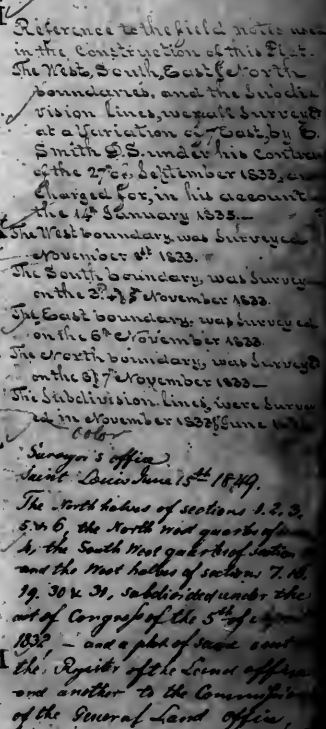 Reference to the field notes used
in the Construction of this Plat.
The West, South, East & North
boundaries, and the Subdi
vision lines, were all Surveyed
at a Variation of 7° East, by E.
Smith D.S. under his Contract
of the 27th of September 1833, an
charged for, in his account
the 14th January 1835.—
The West boundary was Surveyed
November 8th 1833.
The South boundary, was Survey
on the 2d & 5 November 1833.
The East boundary, was Surveyed
on the 6th November 1833.
The North boundary, was Surveyed
on the 6 & 7th November 1833—
The Subdivision lines, were Survey
ed in November 1833 & June
Color
Surveyor's office
Saint Louis June 15th 1849.
The North halves of sections 1. 2. 3.
5 & 6, the North West quarter of
4, the South West quarter of Section
and the West halves of sections 7. 18.
19. 30 & 31, subdivided under the
act of Congress of the 5th of
1832, — and a plat of same sent
the Register of the Land office
and another to the Commission
of the General Land Office,